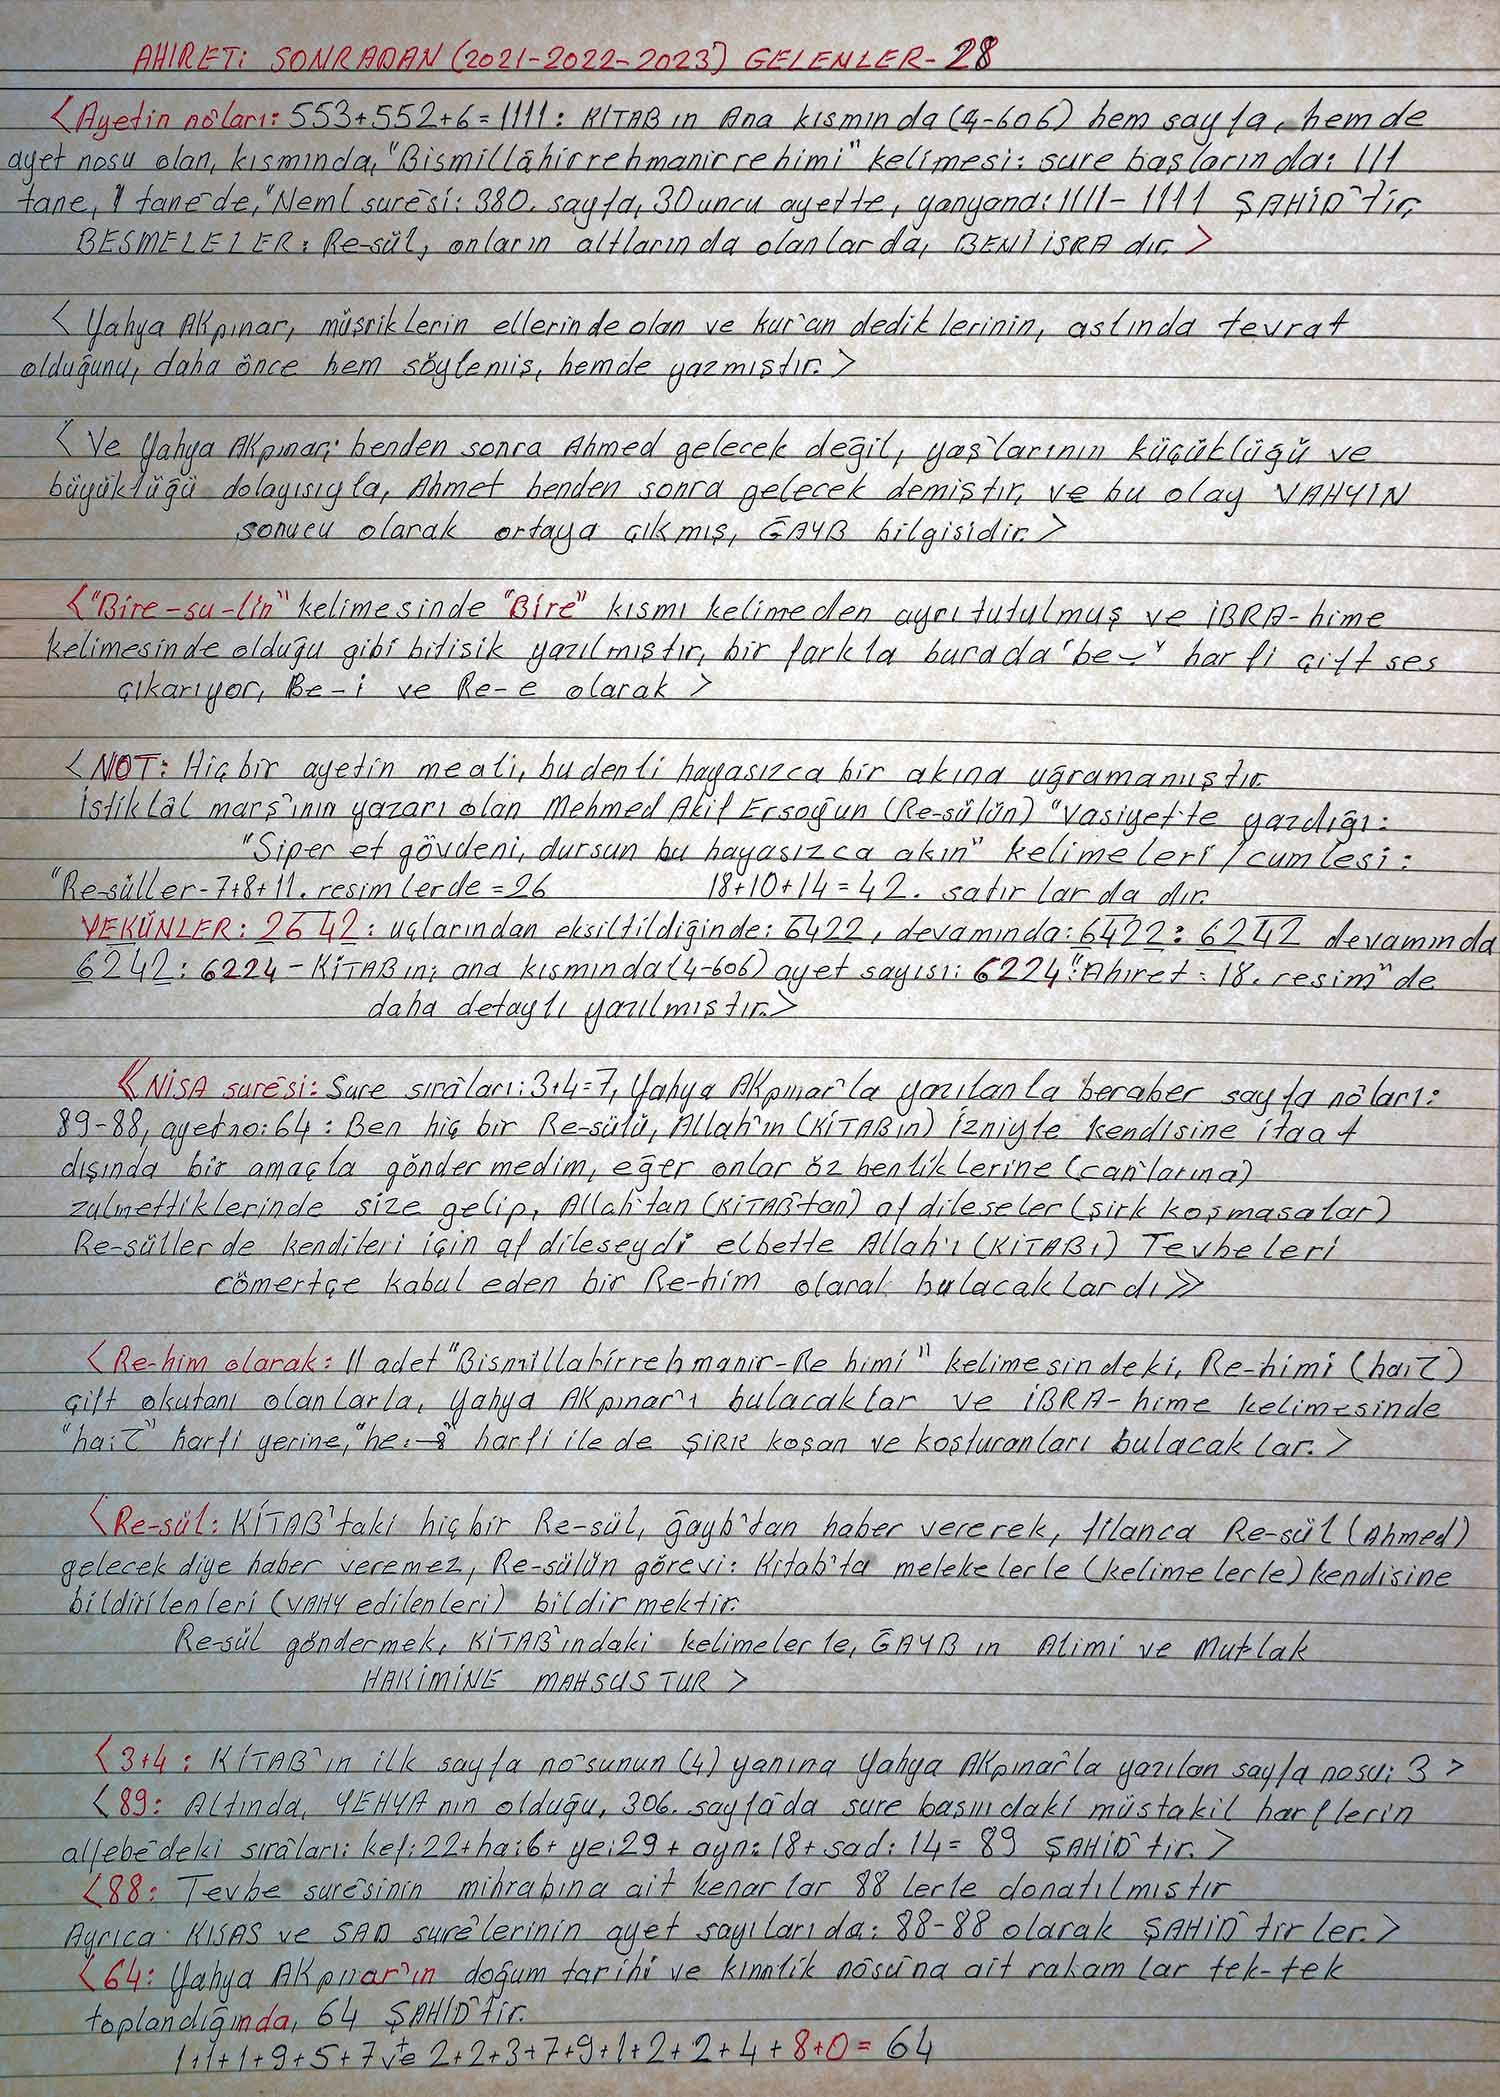 AHIRET: SONRADAN (2021-2022-2023) GELENLER-28
<Ayetin nôları: 553+552+6=1111: KİTAB ın Ana kısmında (4-606) hem sayfa, hemde
ayet nosu olan, kısmında, "Bismillâhirrehmanirrehimi" kelimesi: sure başlarında: 111
tane, 1 tane de, "Neml suresi: 380. sayfa, 30 uncu ayette, yanyana: 1111-1111 ŞAHİD'tir,
BESMELELER: Re-sül, onların altlarında olanlar da, BENİ İSRA dır. >
< Yahya AKpınar, müşriklerin ellerinde olan ve kur'an dediklerinin, aslında tevrat
olduğunu, daha önce hem söylemiş, hemde yazmıştır. >
< Ve Yahya AKpınar; benden sonra Ahmed gelecek değil, yaş'larının küçüklüğü ve
büyüklüğü dolayısıyla, Ahmet benden sonra gelecek demiştir, ve bu olay VAHYİN
sonucu olarak ortaya çıkmış, ĞAYB bilgisidir. >
<"Bire-su-lin" kelimesinde "Bire" kısmı kelimeden ayrı tutulmuş ve İBRA-hime
kelimesinde olduğu gibi bitişik yazılmıştır, bir farkla burada 'be-ب' harfi çift ses
çıkarıyor, Be-i ve Re-e olarak >
< NOT: Hiç bir ayetin meali, bu denli hayasızca bir akına uğramamıştır.
İstiklâl marş'ının yazarı olan Mehmed Akif Ersoğun (Re-sülün) "Vasiyet'te yazdığı:
"Siper et gövdeni, dursun bu hayasızca akın" kelimeleri/cumlesi:
"Re-süller-7+8+11. resimlerde=26 18+10+14=42. satırlarda dır.
YEKÜNLER: 2642: uçlarından eksiltildiğinde: 6422, devamında: 6422: 6242 devamında
6242: 6224-KİTAB ın; ana kısmında (4-606) ayet sayısı: 6224 "Ahiret: 18. resim" de
daha detaylı yazılmıştır. >
<<NİSA suresi: Sure sıraları: 3+4=7, Yahya AKpınar'la yazılanla beraber sayfa nôları:
89-88, ayet no: 64: Ben hiç bir Re-sülü, Allah'ın (KİTABın) İzniyle kendisine itaat
dışında bir amaçla göndermedim, eğer onlar öz benliklerine (can'larına)
zulmettiklerinde size gelip, Allah'tan (KİTAB'tan) af dileseler (şirk koşmasalar)
Re-süller de kendileri için af dileseydi elbette Allah'ı (KİTABı) Tevbeleri
cömertçe kabul eden bir Re-him olarak bulacaklardı >>
< Re-him olarak: 11 adet "Bismillahirrehmanir-Re himi" kelimesindeki, Re-himi (ha:ح)
çift okutanı olanlarla, Yahya AKpınar'ı bulacaklar ve İBRA-hime kelimesinde
"ha:ح" harfi yerine, "he:-ه" harfi ile de ŞİRK koşan ve koşturanları bulacaklar. >
< Re-sül: KİTAB'taki hiçbir Re-sül, ğayb'tan haber vererek, filanca Re-sül (Ahmed)
gelecek diye haber veremez, Re-sülün görevi: Kitab'ta melekelerle (kelimelerle) kendisine
bildirilenleri (VAHY edilenleri) bildirmektir.
Re-sül göndermek, KİTAB'ındaki kelimelerle, ĞAYB ın Alimi ve Mutlak
HAKİMİNE MAHSUSTUR >
< 3+4: KİTAB'ın ilk sayfa no'sunun (4) yanına Yahya AKpınar'la yazılan sayfa nosu: 3 >
< 89: Altında, YEHYA nın olduğu, 306. sayfa'da sure başındaki müstakil harflerin
alfebe'deki sıraları: kef: 22+ha: 6+ ye: 29+ ayn: 18+ sad: 14= 89 ŞAHİD'tir. >
< 88: Tevbe suresinin mihrabına ait kenarlar 88 lerle donatılmıştır
Ayrıca KISAS ve SAD sure'lerinin ayet sayıları da: 88-88 olarak ŞAHİD'tirler. >
< 64: Yahya AKpınar'ın doğum tarihi ve kimlik nôsuna ait rakamlar tek-tek
toplandığında, 64 ŞAHİD'tir.
1+1+1+9+5+7 ve + 2+2+3+7+9+1+2+2+4+8+0= 64